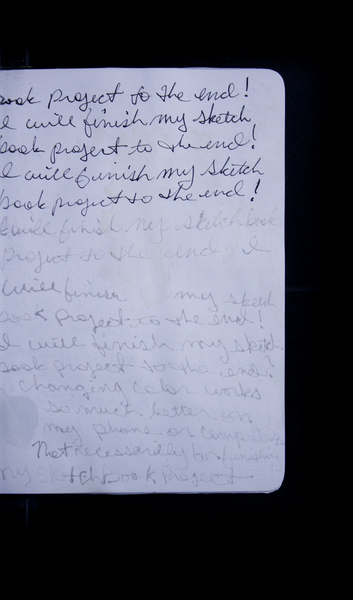 book project to the end!
I will finish my sketch
book project to the end!
I will finish my sketch
book project to the end!
I will finish my sketchbook
project to the end I
will finish my sketch
book project to the end!
I will finish my sketch
book project to the end!
changing color works
so much better on
my phone or computer
Not necessarily for finishing
my sketchbook project